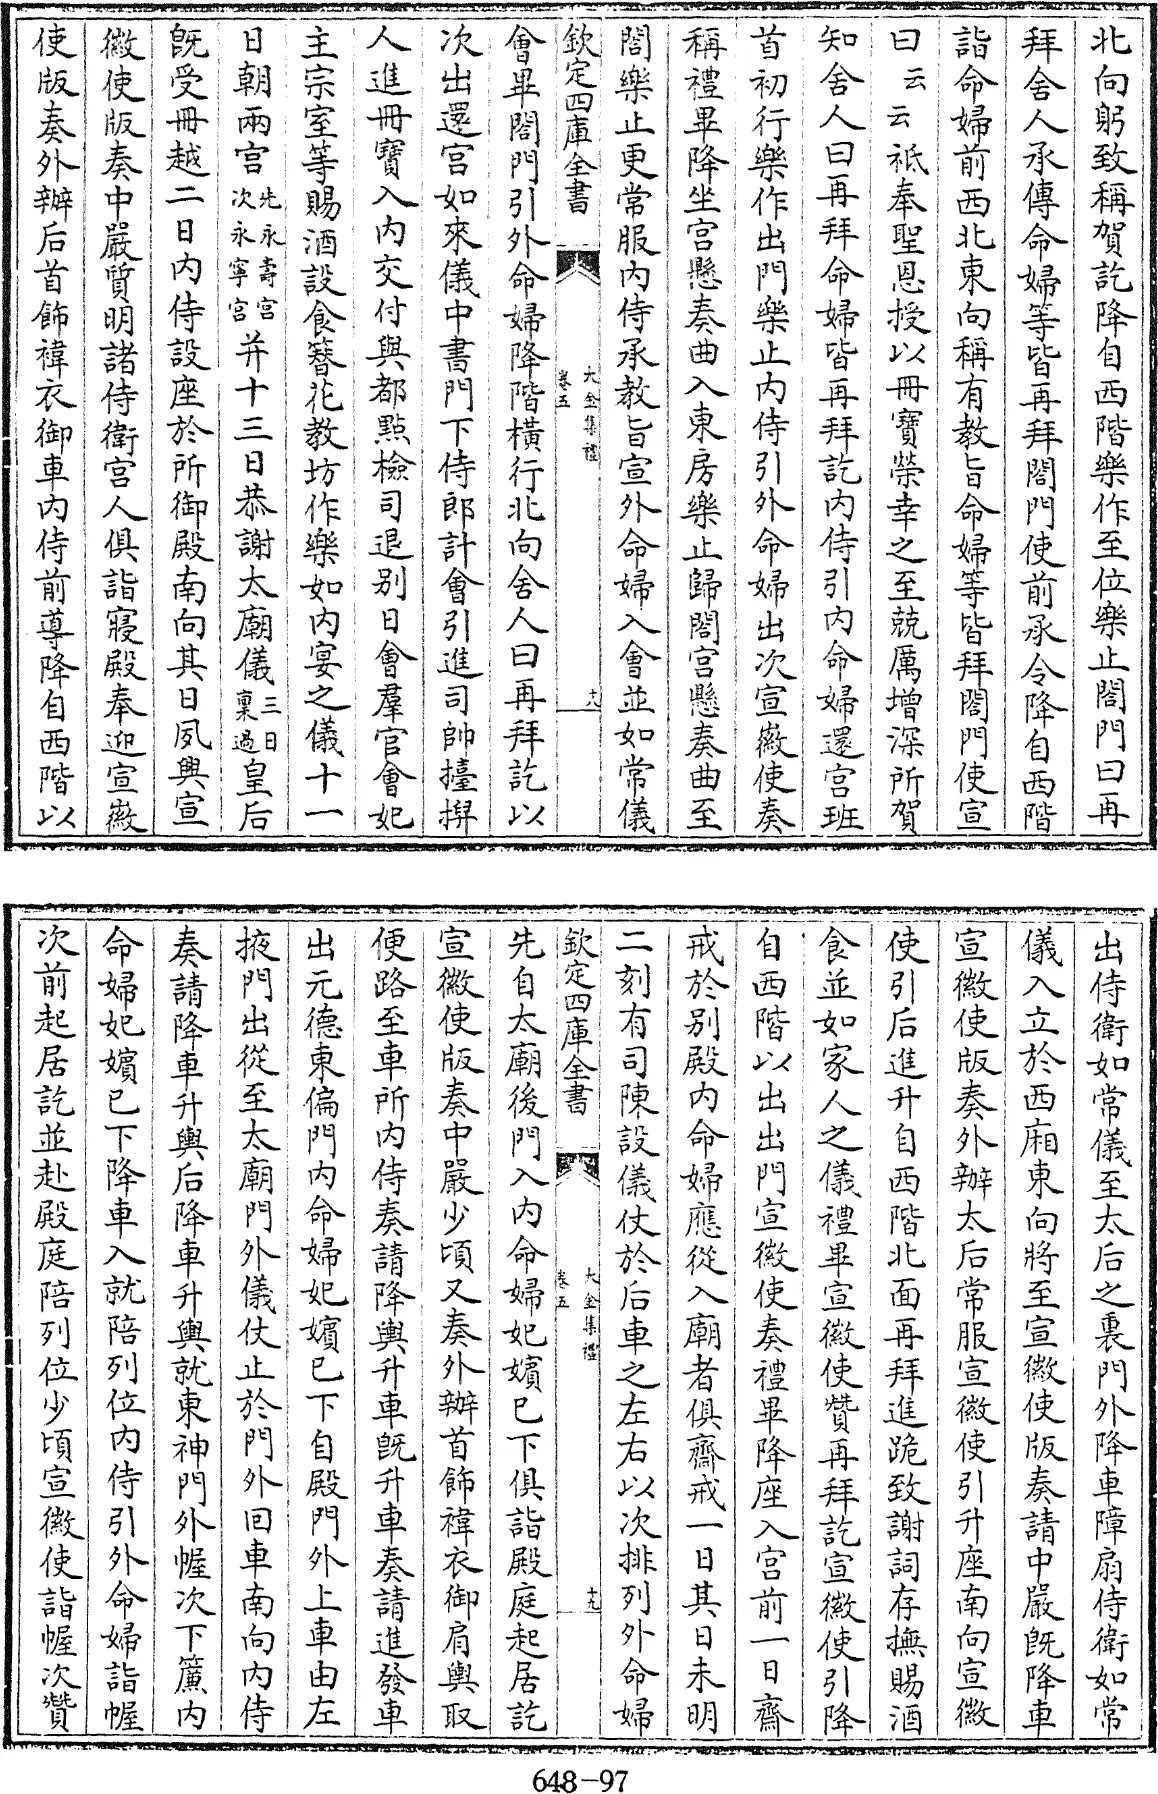 北向躬致稱賀訖降自西階樂作至位樂止閤門曰再
拜舍人承傳命婦等皆再拜閤門使前承令降自西階
詣命婦前西北東向稱有教旨命婦等皆拜閤門使宣
曰云云祗奉聖恩授以冊寶榮幸之至兢厲增深所賀
知舍人曰再拜命婦皆再拜訖内侍引内命婦還宫班
首初行樂作出門樂止内侍引外命婦出次宣徽使奏
稱禮畢降坐宫懸奏曲入東房樂止歸閤宫懸奏曲至
閤樂止更常服内侍承教旨宣外命婦入會並如常儀
欽定四庫全書
大金集禮
卷五
十八
會畢閤門引外命婦降階横行北向舍人曰再拜訖以
次出還宫如來儀中書門下侍郎計會引進司帥擡捍
人進冊寶入内交付與都㸃檢司退别日會羣官會妃
主宗室等賜酒設食簪花教坊作樂如内宴之儀十一
日朝兩宫先永壽宫次永寧宫并十三日恭謝太廟儀三日稟過皇后
既受冊越二日内侍設座於所御殿南向其日夙興宣
徽使版奏中嚴質明諸侍衛宫人俱詣寢殿奉迎宣徽
使版奏外辦后首飾褘衣御車内侍前導降自西階以
出侍衛如常儀至太后之裏門外降車障扇侍衛如常
儀入立於西廂東向將至宣徽使版奏請中嚴既降車
宣徽使版奏外辦太后常服宣徽使引升座南向宣徽
使引后進升自西階北面再拜進跪致謝詞存撫賜酒
食並如家人之儀禮畢宣徽使贊再拜訖宣徽使引降
自西階以出出門宣徽使奏禮畢降座入宫前一日齋
戒於别殿内命婦應從入廟者俱齋戒一日其日未明
二刻有司陳設儀仗於后車之左右以次排列外命婦
欽定四庫全書
大金集禮
卷五
十九
先自太廟後門入内命婦妃嬪已下俱詣殿庭起居訖
宣徽使版奏中嚴少頃又奏外辦首飾褘衣御肩輿取
便路至車所内侍奏請降輿升車既升車奏請進發車
出元德東偏門内命婦妃嬪已下自殿門外上車由左
掖門出從至太廟門外儀仗止於門外回車南向内侍
奏請降車升輿后降車升輿就東神門外幄次下簾内
命婦妃嬪已下降車入就陪列位内侍引外命婦詣幄
次前起居訖並赴殿庭陪列位少頃宣徽使詣幄次贊
648-97